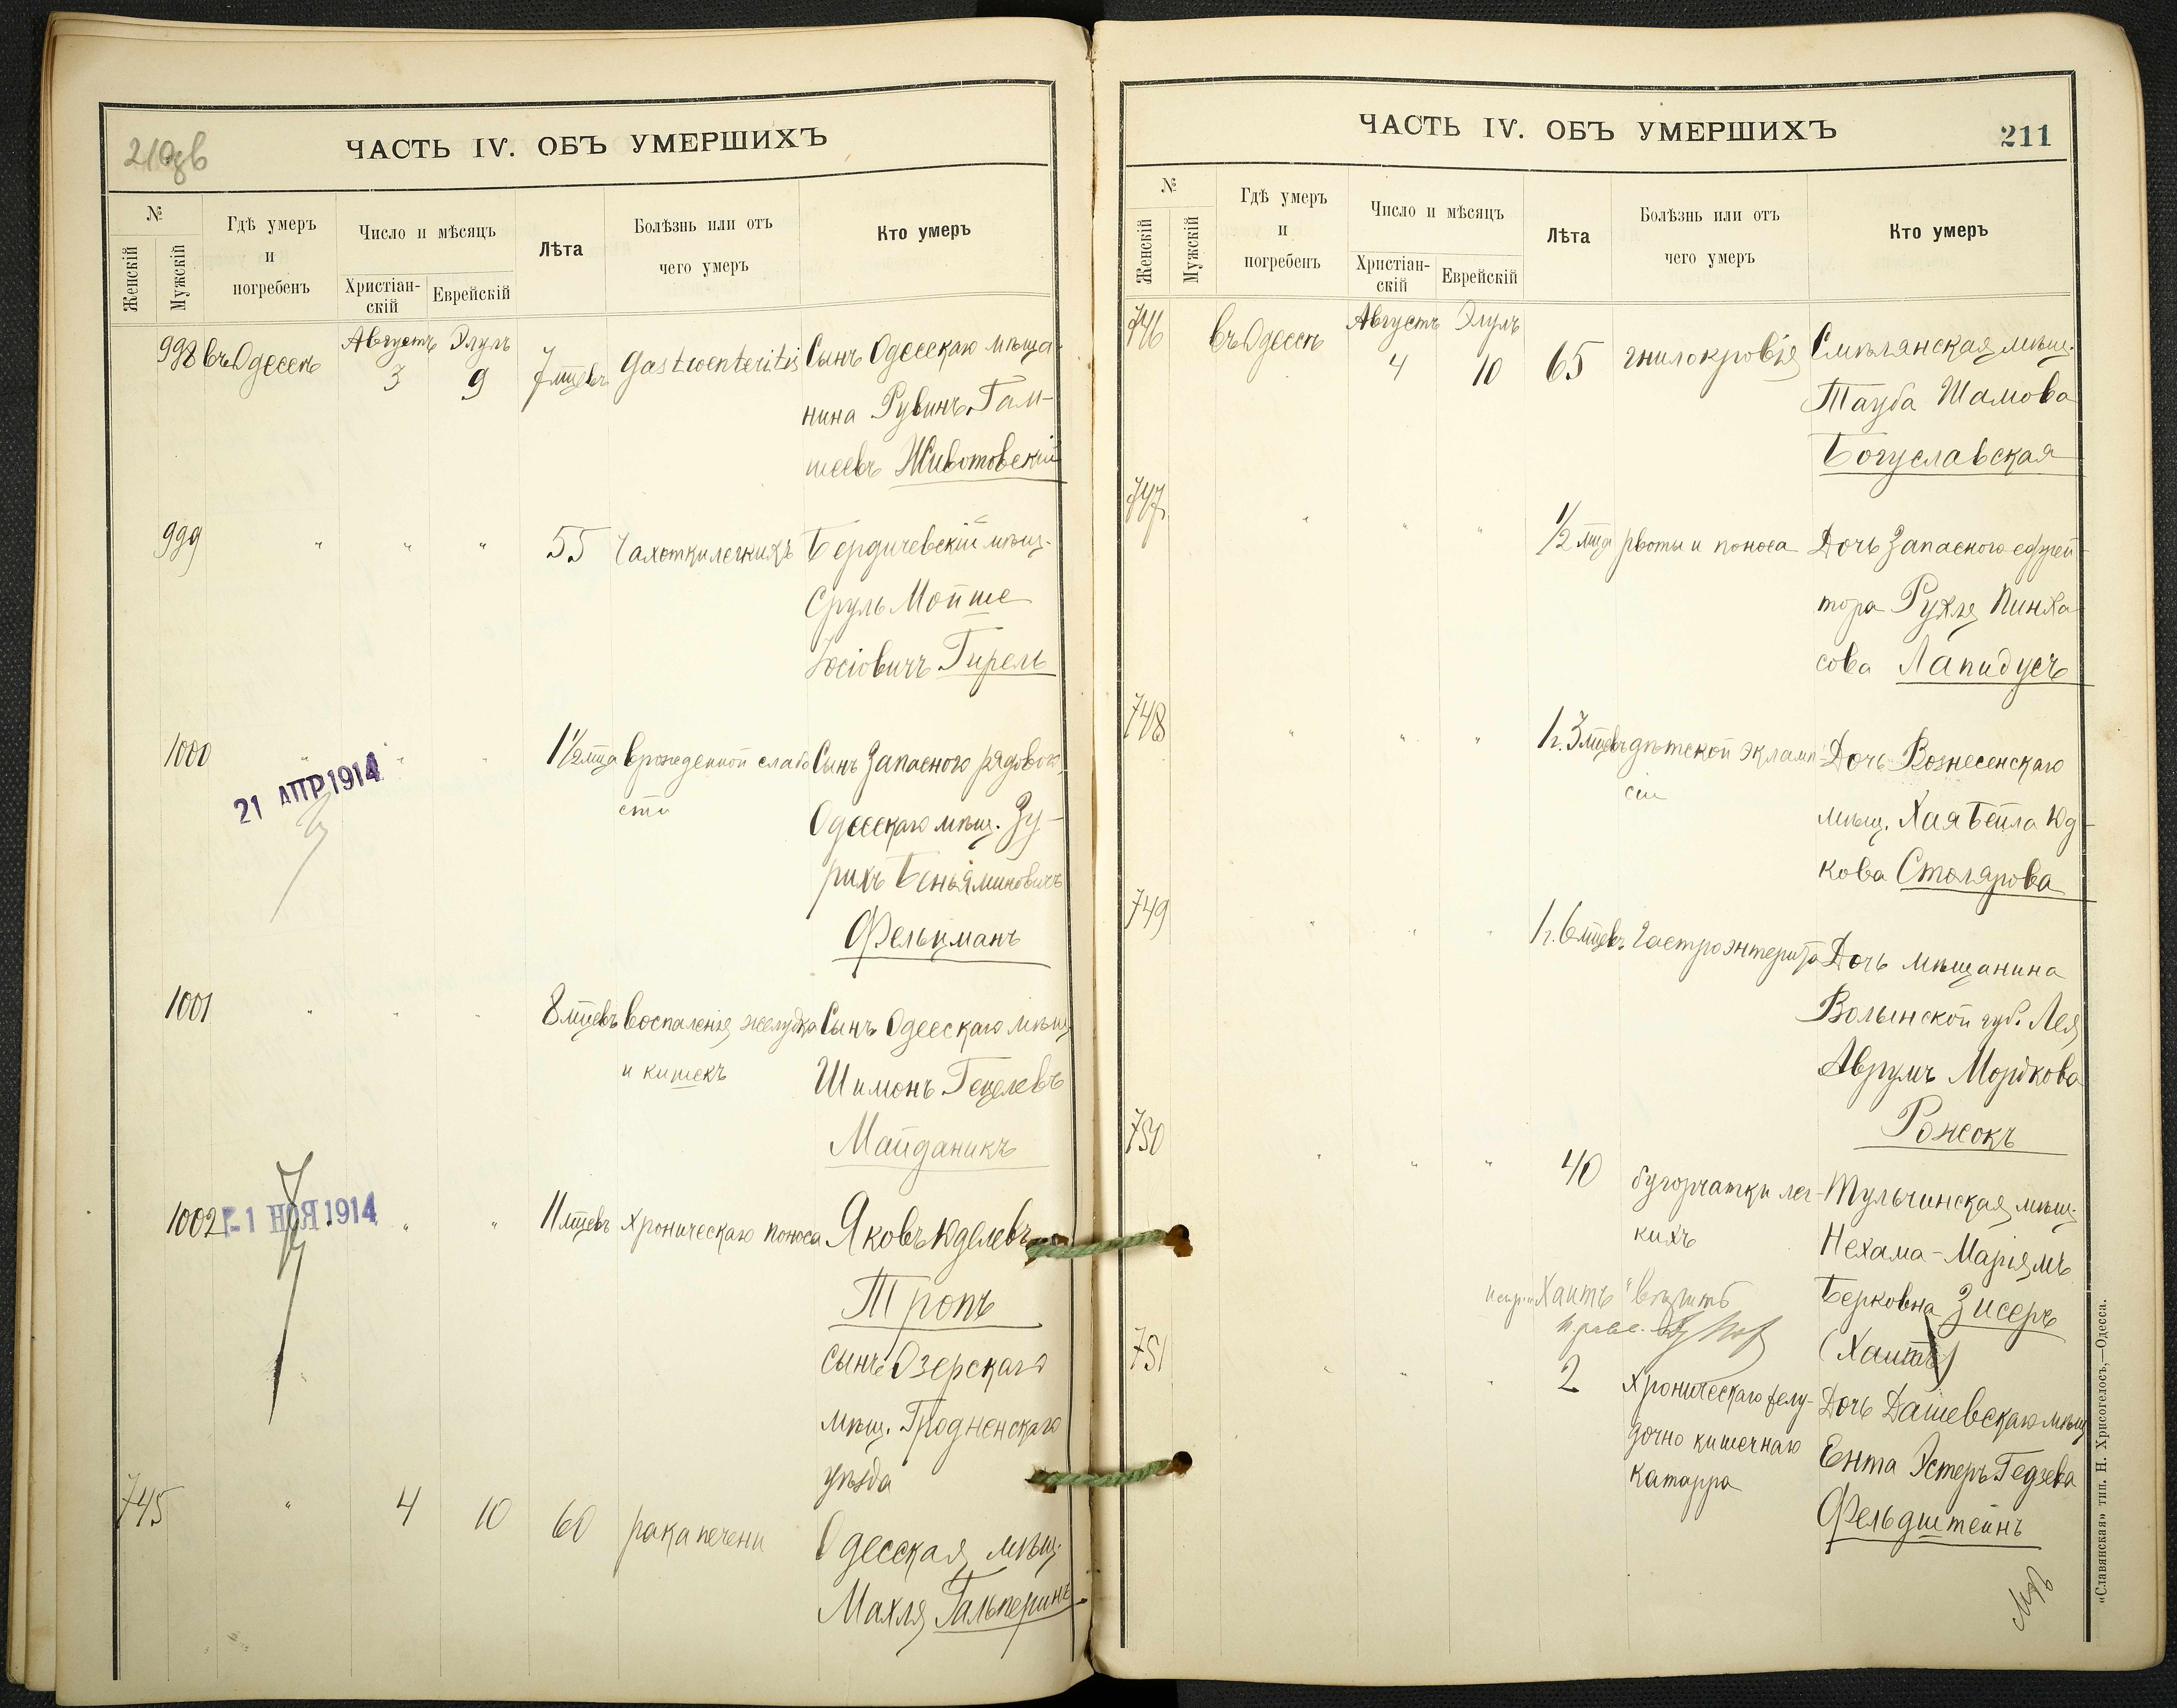 210об
ЧАСТЬ IV. ОБЪ УМЕРШИХЪ
№
Женскій
Мужскій
Гдѣ умеръ
и
погребенъ
Число и мѣсяцъ
Христіан-
скій
Еврейскій
Лѣта
Болѣзнь или отъ
чего умеръ
Кто умеръ
998 въ Одессѣ Августъ 3 Элулъ 9 7 мцевъ Gastroenteritis Сынъ Одесскаго мѣща-
нина Рувинъ Гам-
шеевъ Животовскій
999 " " " 55 Чахотки легкихъ Бердичевскій мѣщ.
Сруль Мойше
Іосіовичъ Гирель
1000 " " " 1½ мца врожденной слабо Сынъ Запаснаго рядового,
сти
21 АПР 1914
Одесскаго мѣщ. Зу-
рихъ Беньяминовичъ
Фельцманъ
1001 " " " 8 мцевъ воспаленія желудка Сынъ Одесскаго мѣщ.
и кишекъ
Шимонъ Гецелевъ
Майданикъ
1002 -1 НОЯ 1914 " " 11 мцевъ хроническаго поноса Яковъ Юделевъ
Тропъ
сынъ Озерскаго
мѣщ. Гродненскаго
уѣзда
745 " 4 10 60 рака печени Одесская мѣщ.
Махля Гальперинъ
ЧАСТЬ IV. ОБЪ УМЕРШИХЪ
211
№
Женскій
Мужскій
Гдѣ умеръ
и
погребенъ
Число и мѣсяцъ
Христіан-
скій
Еврейскій
Лѣта
Болѣзнь или отъ
чего умеръ
Кто умеръ
746 въ Одессѣ Августъ 4 Элулъ 10 65 гнилокровія Смѣлянская мѣщ.
Тауба Шамова
Богуславская
747 " " " ½ мца рвоты и поноса Дочь Запасного ефрей-
тора Рухля Пинха
сова Лапидусъ
748 " " " 1 г. 3 мцевъ дѣтской эклам- Дочь Вознесенскаго
сіи
мѣщ. Хая Бейла Юд-
кова Столярова
749 " " " 1 г. 6 мцевъ Гастроэнтерита Дочь мѣщанина
Волынской губ. Лея
Аврумъ Мордкова
Рожокъ
750 " " " 40 бугорчатки лег- Тульчинская мѣщ.
кихъ
Нехама-Маріямъ
Берковна Зисеръ
(Хаитъ)
Хаитъ"
751 " " " 2 хроническаго желу- Дочь Дашевскаго мѣщ.
дочно кишечнаго
катарра
Ента Эстеръ Гедзева
Фельдштейнъ
«Славянская» тип. Н. Хрисогелосъ,—Одесса.